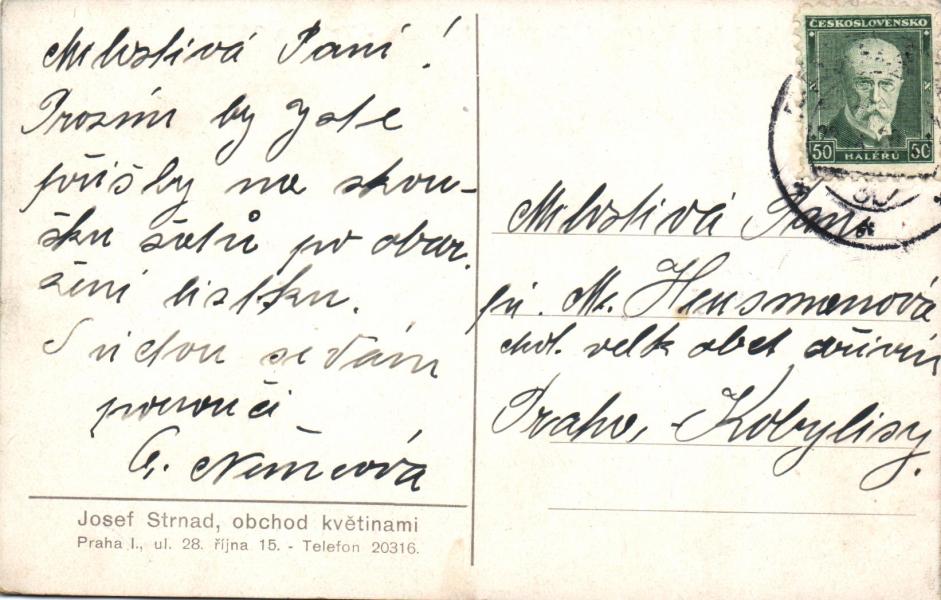 Milostivá Paní!
Prosím by jste
přišly na skou-
šku šatů po obdr-
žení lístku.
S úctou se Vám
poroučí
A. Němcová
Josef Strnad, obchod květinami
Praha I., ul. 28. října 15. - Telefon 20316.
ČESKOSLOVENSKO
50 50
HALÉŘŮ
Milostivá Paní
pí. M. Heusmanová
chot. velk obch dřívím
Praha, - Kobylisy.